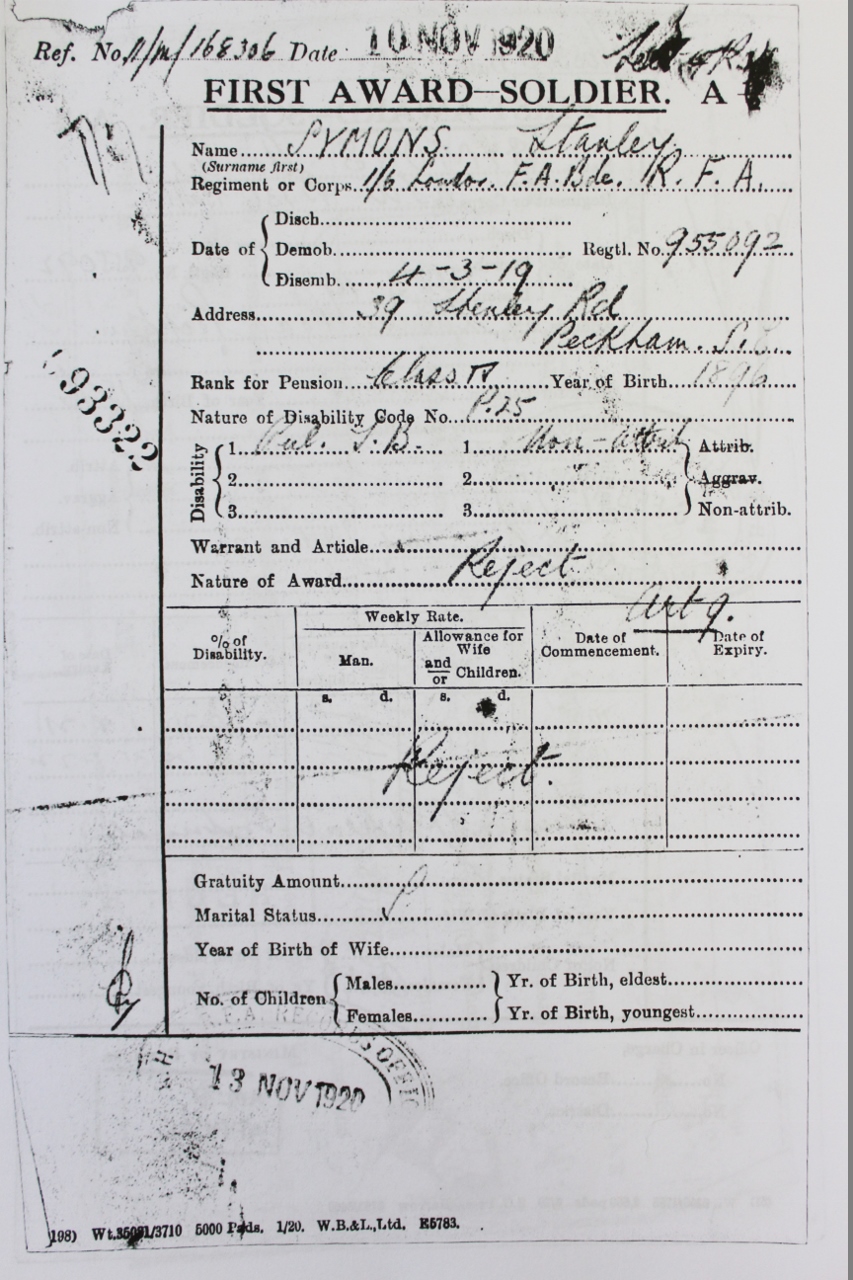 Ref. No. 11/M/168306 Date 10 NOV 1920
FIRST AWARD—SOLDIER. A
Name SYMONS Stanley
(Surname first)
Regiment or Corps 1/6 London. F.A.Bde. R.F.A.
Disch.
Date of Demob. Regtl. No. 955092
Disemb. 4-3-19
Address 39 Stanley Rd
Peckham. S.E.
Rank for Pension Class V Year of Birth 1896
Nature of Disability Code No. P.25
Disability
1. Pul. T.B. 1. Non-attrib Attrib.
2. 2. Aggrav.
3. 3. Non-attrib.
Warrant and Article
Nature of Award Reject
Art 9.
Weekly Rate.
% of Disability. Man. Allowance for Wife and/or Children. Date of Commencement. Date of Expiry.
s. d. s. d.
Reject.
93322
Gratuity Amount
Marital Status S.
Year of Birth of Wife
No. of Children Males Yr. of Birth, eldest
Females Yr. of Birth, youngest
R.F.A. RECORDS OFFICE
13 NOV 1920
198) Wt. /3710 5000 Pads. 1/20. W.B.&L.,Ltd. E5783.